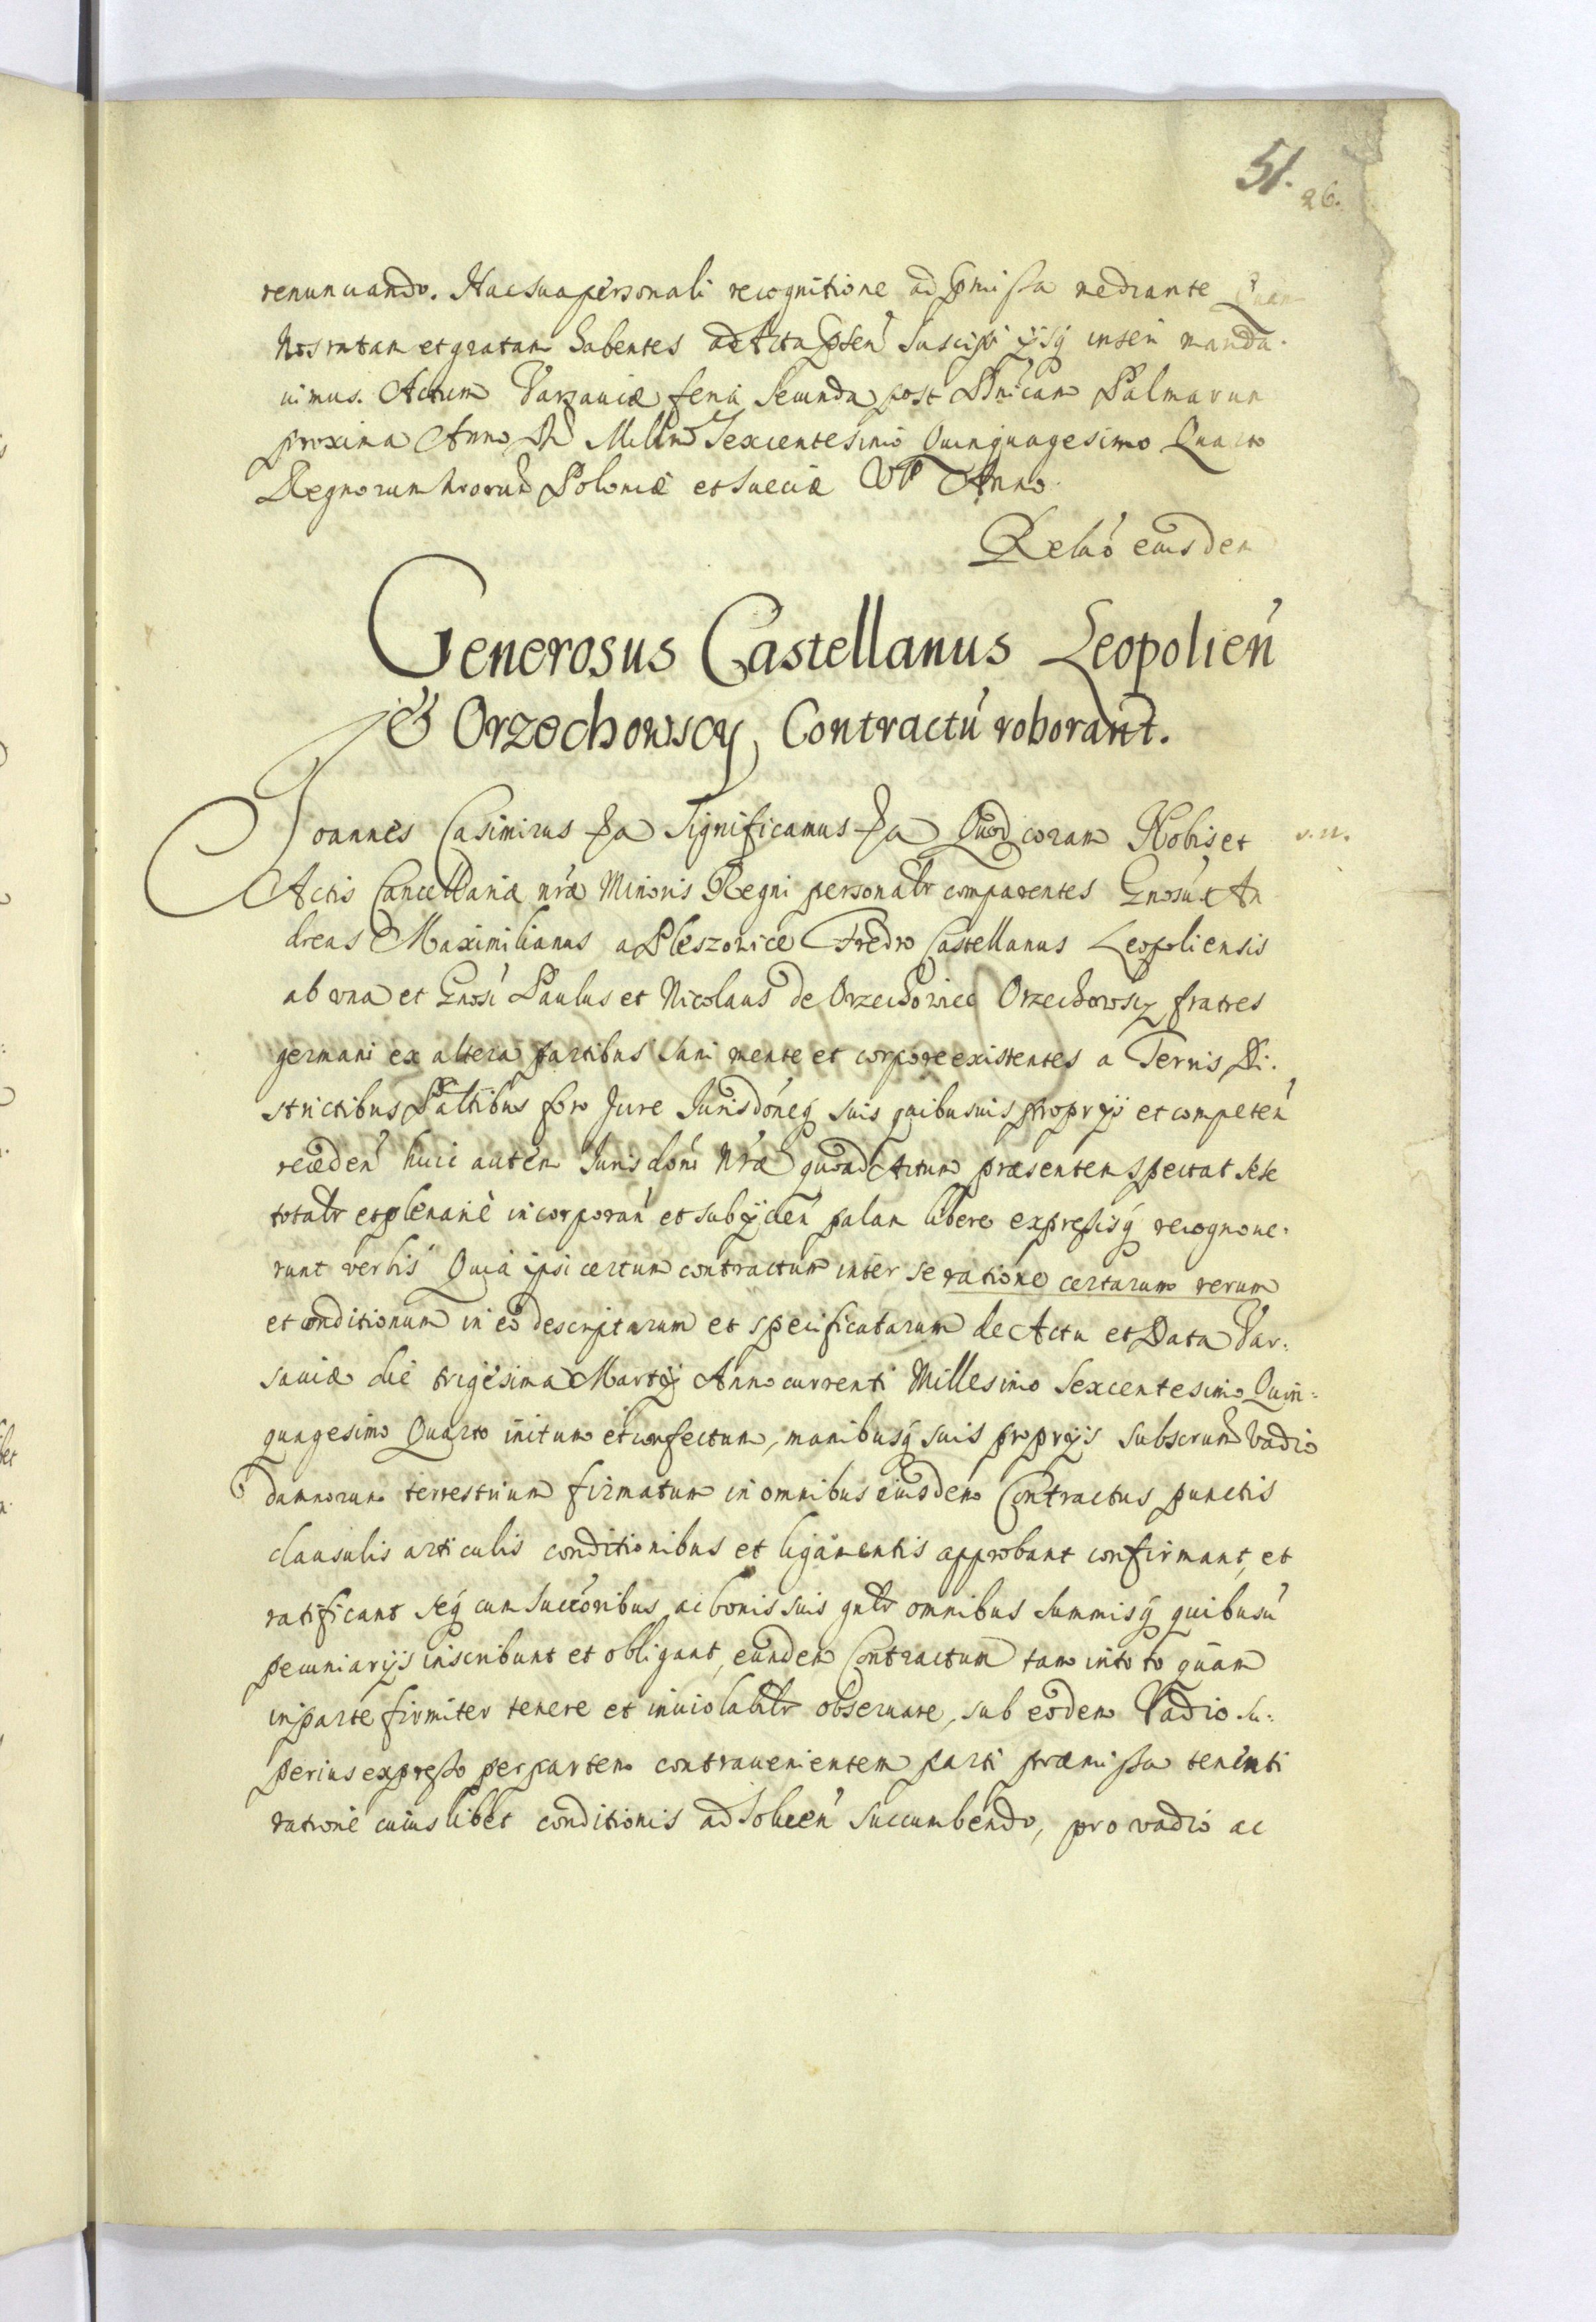 51.
26.
renunciando. Hac sua personali recognitione ad pmissa mediante Quam
Nos ratam et gratam habentes ad Acta pñsen̄ suscipi ijsq̨ inseri manda-
uimus. Actum Varsauiæ feria Secunda post Dnicam Palmarum
proxima Anno Dni Millmo Sexcentesimo Quinquagesimo Quarto
Regnorum nrorum Poloniæ et Sueciæ VI Anno.
Relaõ eiusdem
Generosus Castellanus Leopolień
& Orzechowscy, Contractú roborant.
Joannes Casimirus &a Significamus &a Quod coram Nobis et
v. n.
Actis Cancellariæ nræ Minoris Regni personalr comparentes Gnosús An
dreas Maximilianus a Pleszowice Fredro Castellanus Leopoliensis
ab vna et Gnosi Paulus et Nicolaus de Orzechowice Orzechowscy fratres
germani ex altera partibus sani mente et corpore existentes a Terris Di-
strictibus Paltibus foro Jure Jurisdoneq̨ suis quibusuis proprijs et competeń
recedeń huic autem Jurisdoni Nræ quoad Actum præsentem spectat sese
totalr et plenarie incorporań et subijcień palam libere expressisq̨ recognoue-
runt verbis Quia ipsi certum contractum inter se ratione certarum rerum
et conditionum in eo descriptarum et specificatarum de Actu et Data Var-
sauiæ die trigesima Martij Anno currenti Millesimo Sexcentesimo Quin-
quagesimo Quarto initum et confectum, manibusq̨ suis proprijs subscrum vadio
damnorum terrestrium firmatum in omnibus eiusdem Contractus punctis
clausulis articulis conditionibus et ligamentis approbant confirmant, et
ratificant seq̨ cum successoribus ac bonis suis gnlr omnibus summisq̨ quibusú
pecuniarijs inscribunt et obligant, eundem Contractum tam in toto quam
in parte firmiter tenere et inuiolablr obseruare, sub eodem Vadio su-
perius expresso per partem contrauenientem parti præmissa tenenti
ratione cuiuslibet conditionis ad soluen̄ succumbendo, pro vadio ac